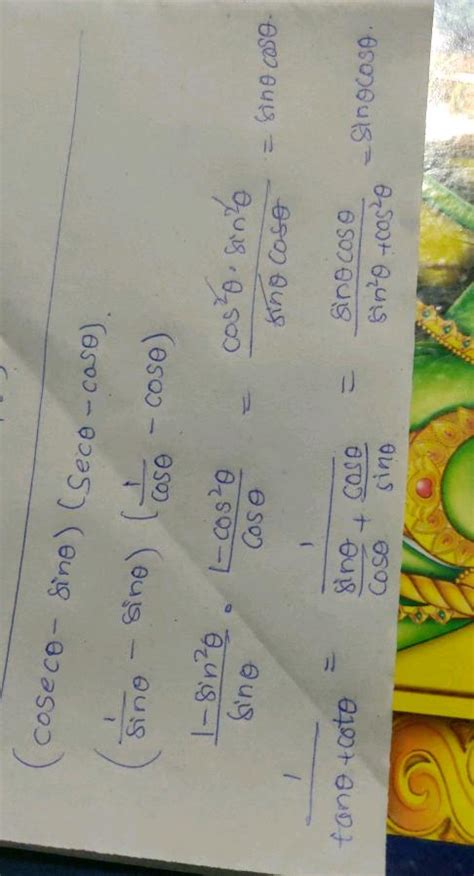 (cosecθ - sinθ) (secθ - cosθ).
(1/sinθ - sinθ) (1/cosθ - cosθ)
1-sin²θ/sinθ . 1-cos²θ/cosθ = cos²θ . sin²θ/sinθ cosθ = sinθ cosθ.
1/tanθ+cotθ = 1/sinθ/cosθ + cosθ/sinθ = sinθ cosθ/sin²θ+cos²θ = sinθcosθ.